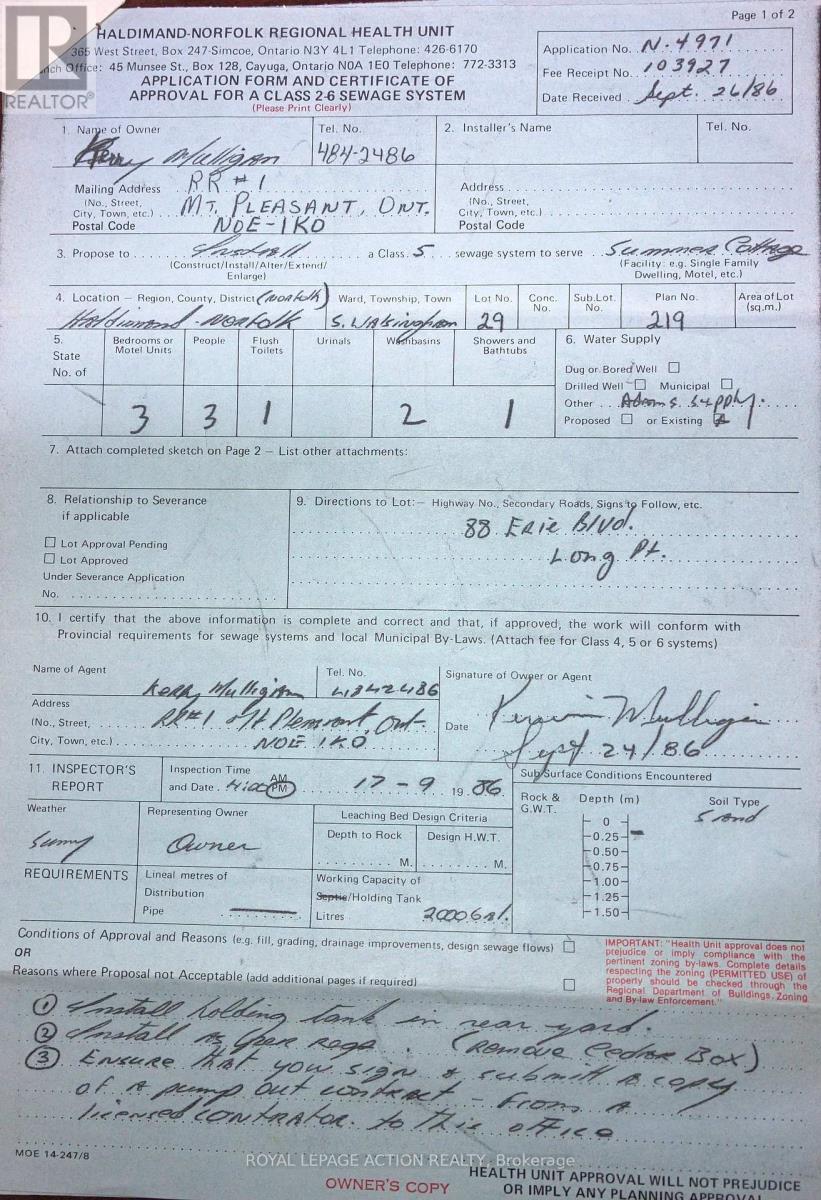 REALTOR®
Page 1 of 2
HALDIMAND-NORFOLK REGIONAL HEALTH UNIT
365 West Street, Box 247 Simcoe, Ontario N3Y 4L1 Telephone: 426-6170
nch Office: 45 Munsee St., Box 128, Cayuga, Ontario N0A 1E0 Telephone: 772-3313
APPLICATION FORM AND CERTIFICATE OF
APPROVAL FOR A CLASS 2-6 SEWAGE SYSTEM
(Please Print Clearly)
Application No. N-4971
Fee Receipt No. 103927
Date Received Sept. 26/86
1. Name of Owner Tel. No. 2. Installer's Name Tel. No.
Kerry Mulligan 484-2486
Mailing Address RR #1 Address
(No., Street, City, Town, etc.) MT. PLEASANT, ONT. (No., Street, City, Town, etc.)
Postal Code NOE-1KO Postal Code
3. Propose to Install a Class 5 sewage system to serve Summer Cottage
(Construct/Install/Alter/Extend/ Enlarge) (Facility: e.g. Single Family Dwelling, Motel, etc.)
4. Location – Region, County, District (Norfolk) Ward, Township, Town Lot No. Conc. No. Sub.Lot. No. Plan No. Area of Lot (sq.m.)
Haldimand-Norfolk S. Walsingham 29 219
5. State No. of Bedrooms or Motel Units People Flush Toilets Urinals Washbasins Showers and Bathtubs
3 3 1 2 1
6. Water Supply
Dug or Bored Well
Drilled Well Municipal
Other Adams Supply.
Proposed or Existing
7. Attach completed sketch on Page 2 – List other attachments:
8. Relationship to Severance
if applicable
Lot Approval Pending
Lot Approved
Under Severance Application
No.
9. Directions to Lot:– Highway No., Secondary Roads, Signs to Follow, etc.
88 Erie Blvd.
Long Pt.
10. I certify that the above information is complete and correct and that, if approved, the work will conform with
Provincial requirements for sewage systems and local Municipal By-Laws. (Attach fee for Class 4, 5 or 6 systems)
Name of Agent Tel. No. Signature of Owner or Agent
Kerry Mulligan 4842486
Address
(No., Street, RR#1 Mt Pleasant, Ont.
City, Town, etc.) NOE 1KO
Mulligan
Date Sept 24/86
11. INSPECTOR'S REPORT Inspection Time and Date 4:00 AM PM 17-9 19 86
Sub Surface Conditions Encountered
Rock & G.W.T. Depth (m) Soil Type
Sand
0
0.25
0.50
0.75
1.00
1.25
1.50
Weather Representing Owner Leaching Bed Design Criteria
Sunny Owner Depth to Rock M. Design H.W.T. M.
REQUIREMENTS Lineal metres of Distribution Pipe
Working Capacity of
Septic/Holding Tank
Litres 2000 Gal.
Conditions of Approval and Reasons (e.g. fill, grading, drainage improvements, design sewage flows)
OR
Reasons where Proposal not Acceptable (add additional pages if required)
IMPORTANT: "Health Unit approval does not
prejudice or imply compliance with the
pertinent zoning by-laws. Complete details
respecting the zoning (PERMITTED USE) of
property should be checked through the
Regional Department of Buildings, Zoning
and By-law Enforcement."
① Install holding tank in rear yard.
② Install as per regs. (Remove Cedar Box)
③ Ensure that you sign & submit a copy
of a pump out contract - from a
licensed contrator to this office
MOE 14-247/8
ROYAL LEPAGE ACTION REALTY, Brokerage
OWNER'S COPY
HEALTH UNIT APPROVAL WILL NOT PREJUDICE
OR IMPLY ANY PLANNING APPROVAL